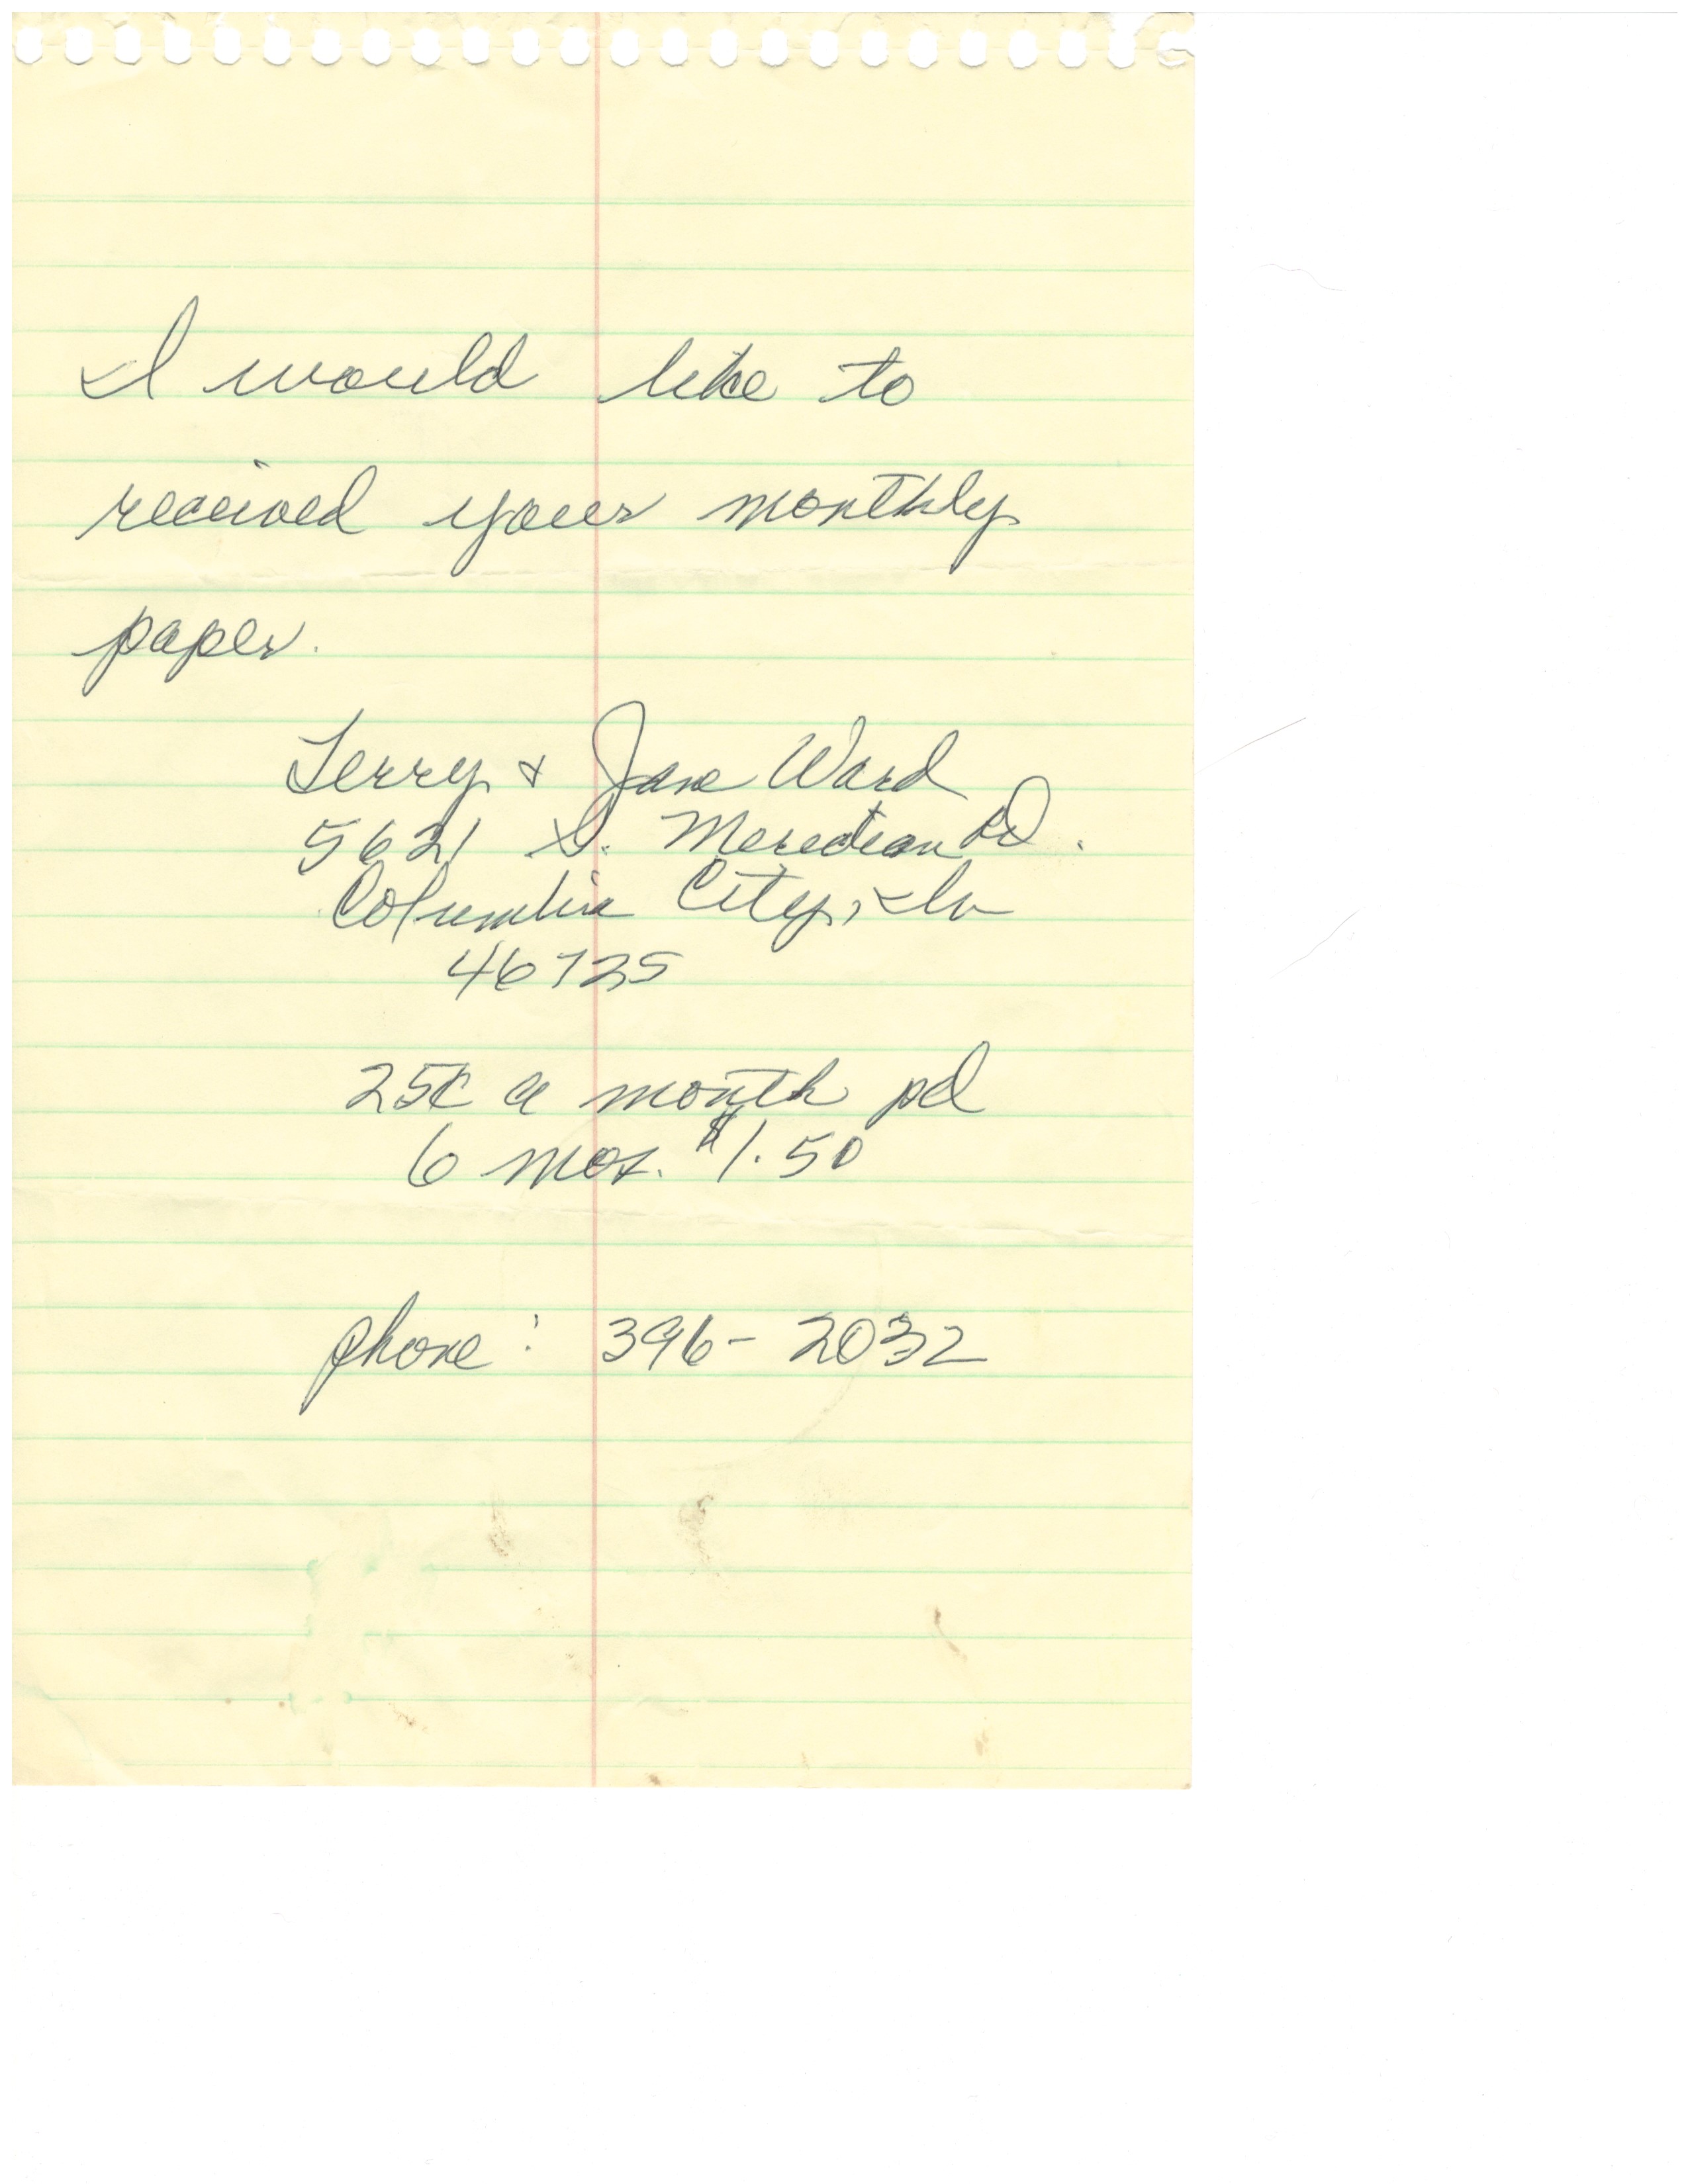 I would like to
received your monthly
paper.
Terry & Jane Ward
5621 S. Meredian Rd.
Columbia City, In
46725
25¢ a month pd
6 mos. $1.50
phone: 396-2032